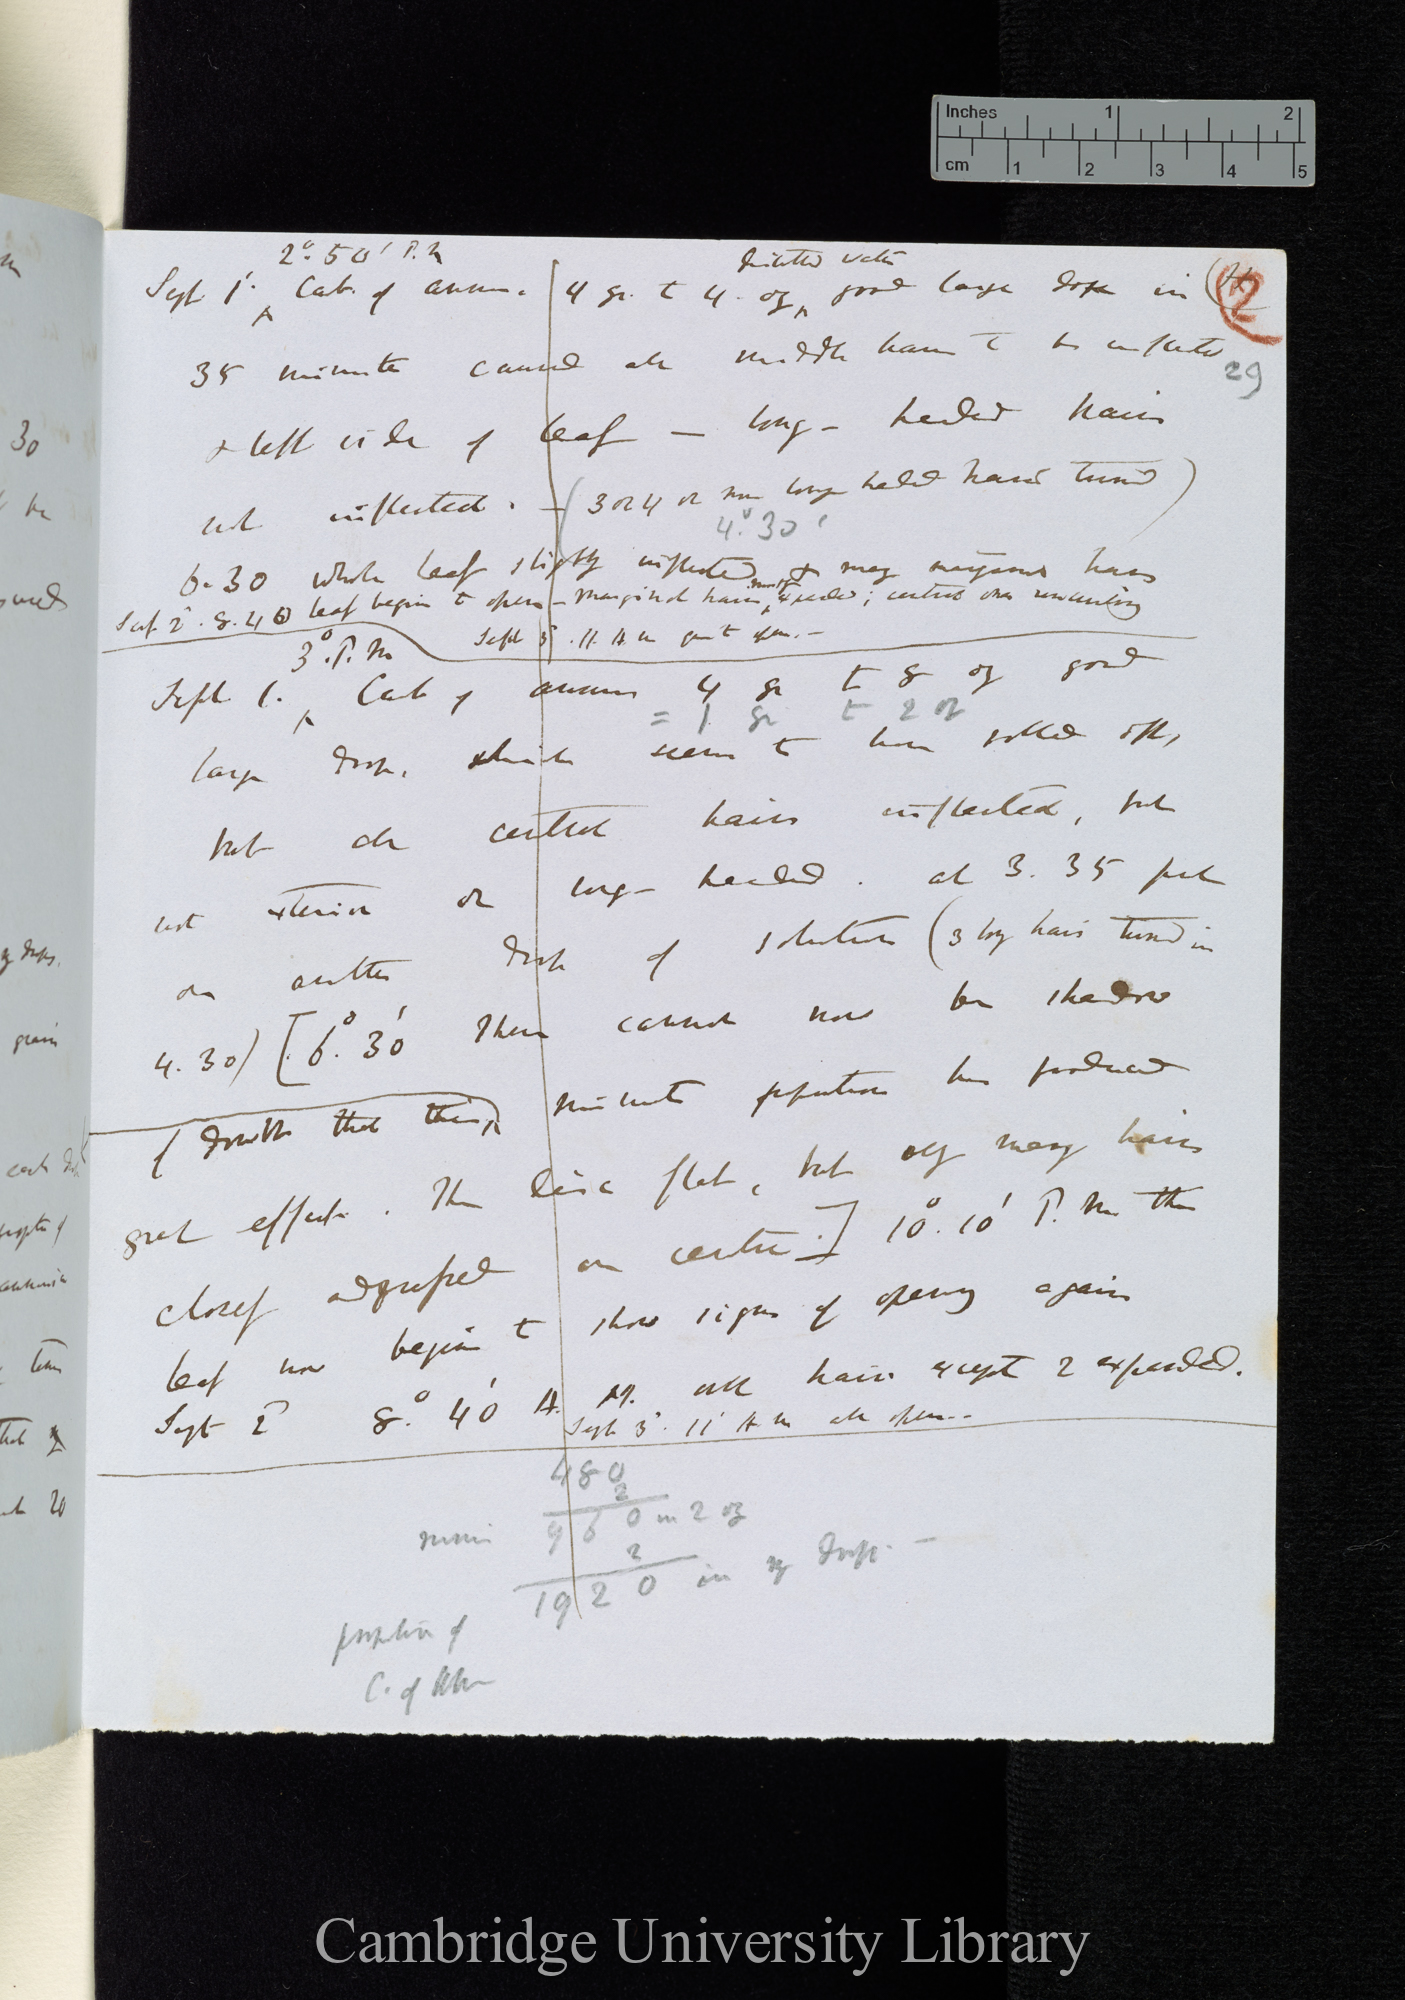 Inches 1 2
cm 1 2 3 4 5
2°. 50' P.M
distilled water
Sept 1. Carb. of ammon. 4 gr. to 4. oz good large drop in
2
29
35 minutes caused all middle hairs to be inflected
& left side of leaf — long-headed hairs
not inflected. — (3 or 4 or more long headed hairs turned)
4°. 30'
6.30 whole leaf slightly inflected & many marginal hairs
Sept 2. 8.40 leaf begins to open — marginal hairs mostly expanded; central ones remaining
Sept 3. 11. A m quite open. —
3°. P.M
Sept 1. Carb of ammon 4 gr to 8 oz good
= 1 gr to 2 oz
large drop, which seems to have rolled off,
but all central hairs inflected, but
not exterior or long-headed. at 3.35 put
on another drop of solution (3 long hairs turned in
4.30) [6°. 30' There cannot now be shadow
of doubt that this minute proportion has produced
great effect. The disc flat, but only many hairs
closely adpressed on centre.] 10°. 10' P.M this
leaf now begins to show signs of opening again
Sept 2 8°. 40' A. M. all hairs except 2 expanded.
Sept 3. 11' A m all open.—
480
2
960 in 2 oz
2
1920 in my drop. —
proportion of
C. of Am
30
my drops.
grains
each drop
ammonia
that
20
Cambridge University Library